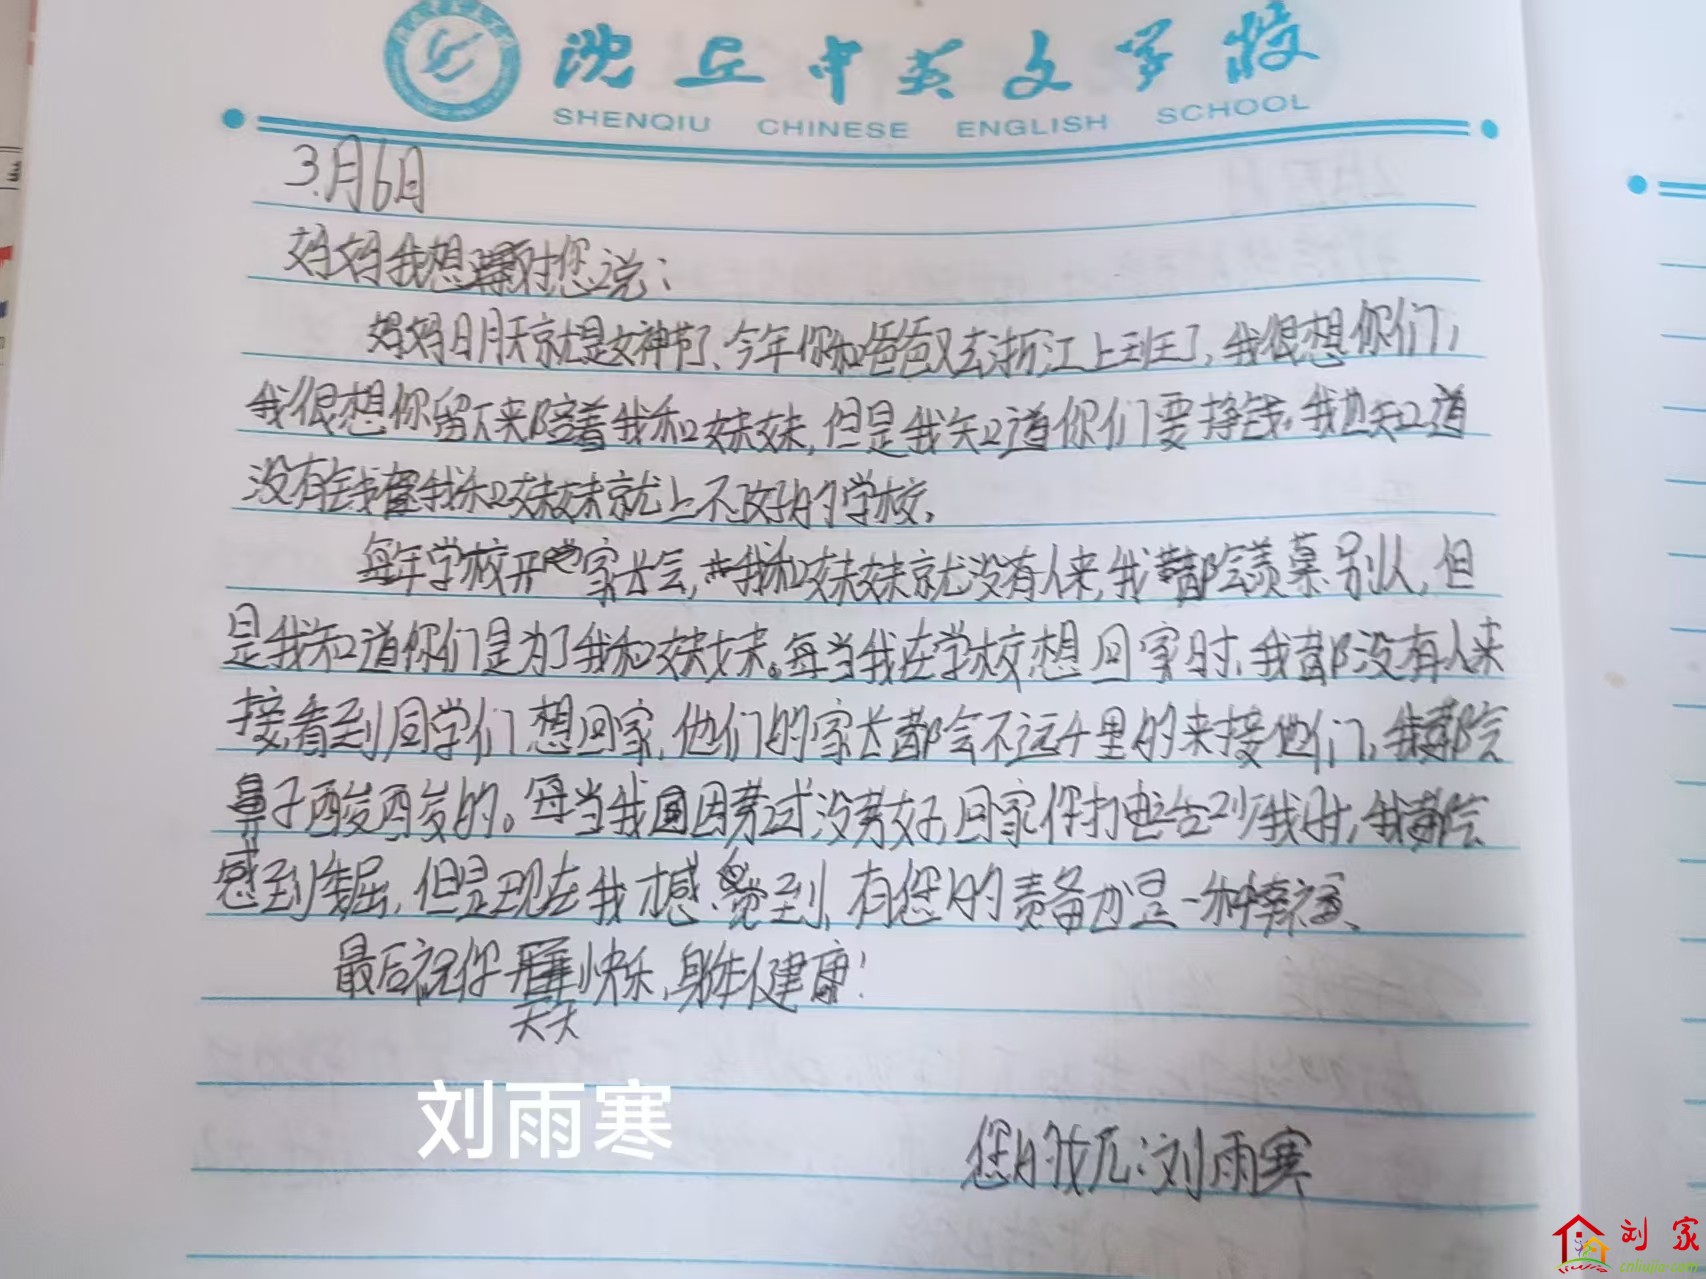 沈丘中英文学校
SHENQIU CHINESE ENGLISH SCHOOL
3月6日
妈妈我想对您说：
妈妈明天就是女神节了、今年你和爸爸又去浙江上班了，我很想你们，
我很想你留下来陪着我和妹妹，但是我知道你们要挣钱，我也知道
没有钱我和妹妹就上不了好的学校，
每年学校开家长会，我和妹妹就没有人来，我都会羡慕别人，但
是我知道你们是为了我和妹妹。每当我在学校想回家时、我都没有人来
接，看到同学们想回家，他们的家长都会不远千里的来接他们，我都会
鼻子酸酸的。每当我因考试没考好，回家你打电话到我时，我都会
感到，但是现在我才感觉到，有您的责备也是一种幸福、
最后祝你天天快乐，身体健康！
刘雨寒
您的女儿：刘雨寒
刘家
cnliujia.com